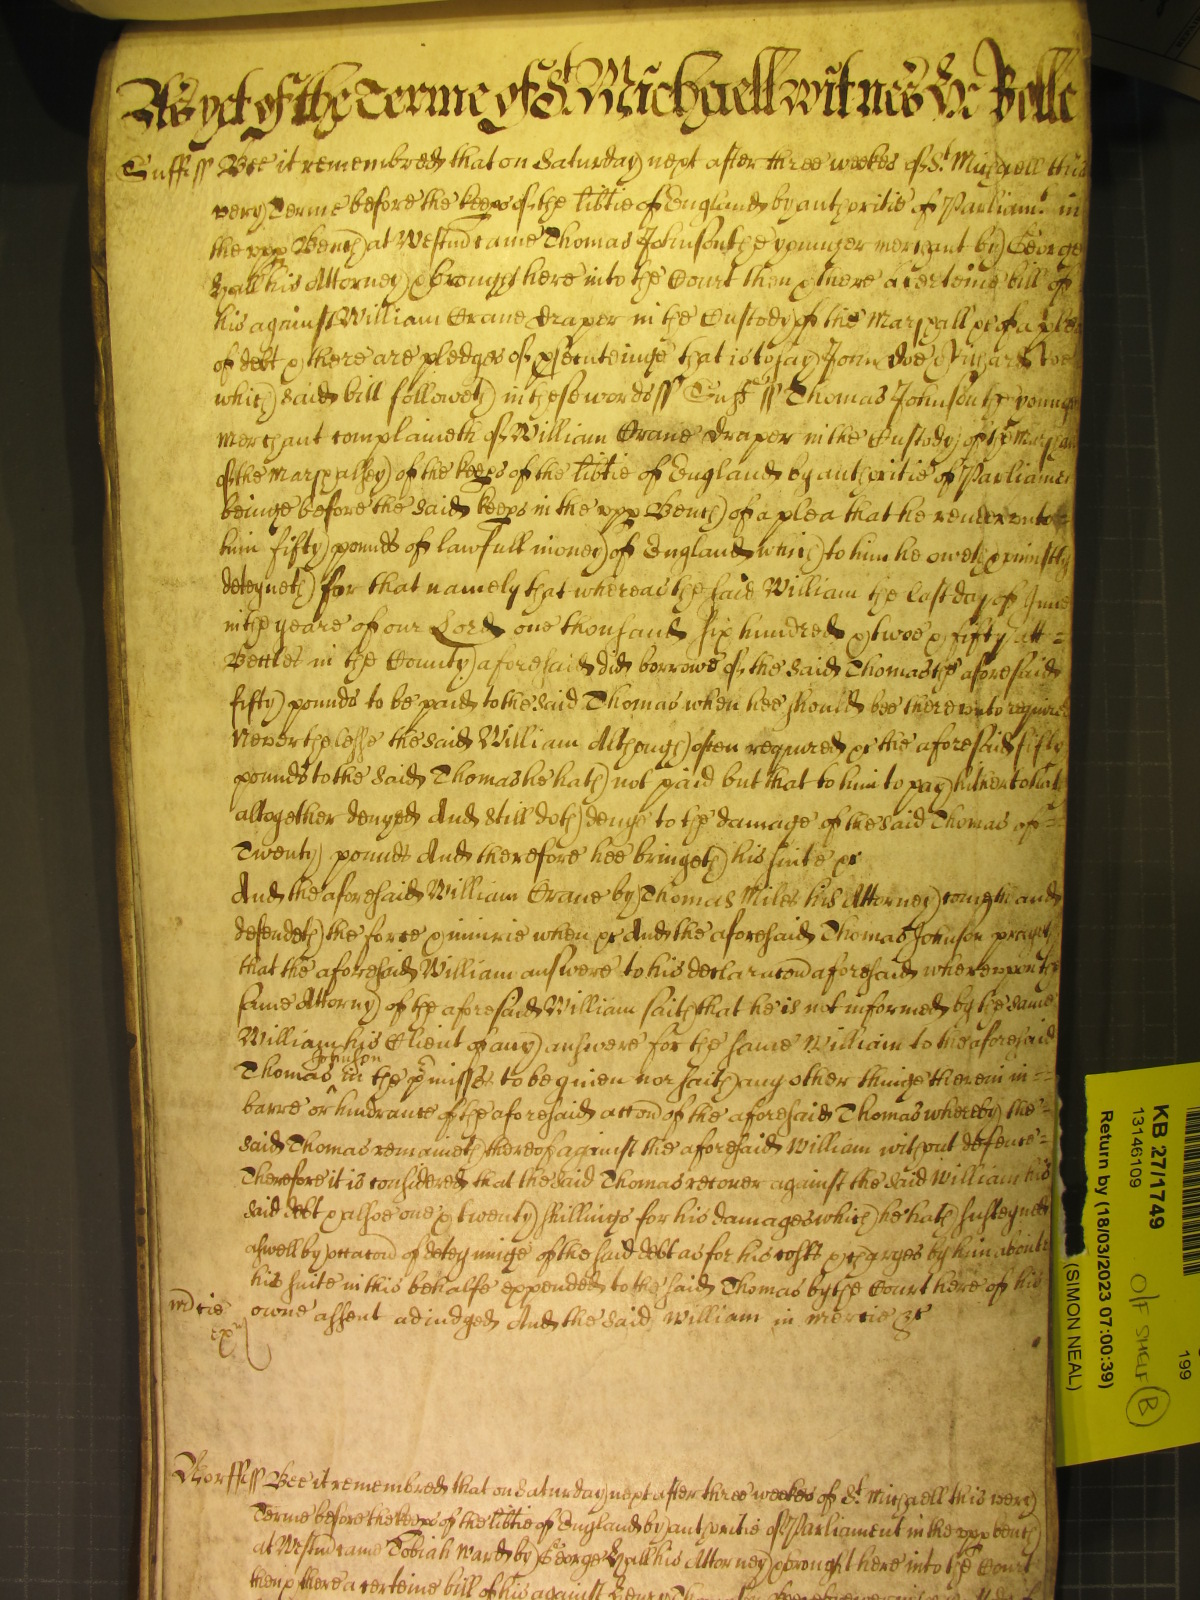 As yet of the Terme of St Michaell witnes He Rolle
Suff ss Bee it remembred that on Saturday next after three weekes of St Michaell this
very Terme before the keeps of the libtie of England by authoritie of Parliamt in
the vpp Bench at Westm came Thomas Johnson the younger merchant by George
Hall his Attorney & brought here into the Court then & there a certeine bill of
his against William Crane draper in the Custody of the Marshall &c of a plea
of debt & there are pledges of psecuteinge that is to say John Doe & Richard Roe
which said bill followeth in these words ss Suff ss Thomas Johnson the younger
merchant complaineth of William Crane draper in the Custody of the Marshall
of the Marshalsey of the keeps of the libtie of England by authoritie of Parliament
beinge before the said keeps in the vpp Bench of a plea that he render vnto
him fifty pounds of lawfull money of England which to him he oweth & uniustly
deteyneth for that namely that whereas the said William the last day of June
in the yeare of our Lord one thousand six hundred & twoe & fifty att
Beccles in the County aforesaid did borrowe of the said Thomas the aforesaid
fifty pounds to be paid to the said Thomas when hee should bee therevnto required
Neverthelesse the said William Although often required &c the aforesaid fifty
pounds to the said Thomas he hath not paid but that to him to pay hitherto hath
altogether denyed And still doth denye to the damage of the said Thomas of
Twenty pounds And therefore hee bringeth his suite &c
And the aforesaid William Crane by Thomas Miles his Attorney cometh and
defendeth the force & iniurie when &c And the aforesaid Thomas Johnson prayeth
that the aforesaid William answere to his declaracon aforesaid wherevpon the
same Attorny of the aforesaid William saith that he is not informed by the same
William his Client of any answere for the same William to the aforesaid
Johnson
Thomas in the pmisses to be given nor saith any other thinge therein in
barre or hindrance of the aforesaid accon of the aforesaid Thomas whereby the
said Thomas remaineth thereof against the aforesaid William without defence
Therefore it is considered that the said Thomas recover against the said William his
said debt & alsoe one & twenty shillings for his damages which he hath susteyned
aswell by occacon of deteyninge of the said debt as for his costs & charges by him about
his suite in this behalfe expended to the said Thomas by the Court here of his
owne assent adiudged And the said William in mercie &c
mcie
expr
Norff ss Bee it remembred that on Saturday next after three weekes of St Michaell this very
Terme before the keeps of the libtie of England by authoritie of Parliament in the vpp bench
at Westm came Tobiah Ward by George Hall his Attorney & brought here into the Court
then & there a certeine bill of his against
KB 27/1749
13146109
Return by (18/03/2023 07:00:39)
(SIMON NEAL)
199
O/F SHELF
B